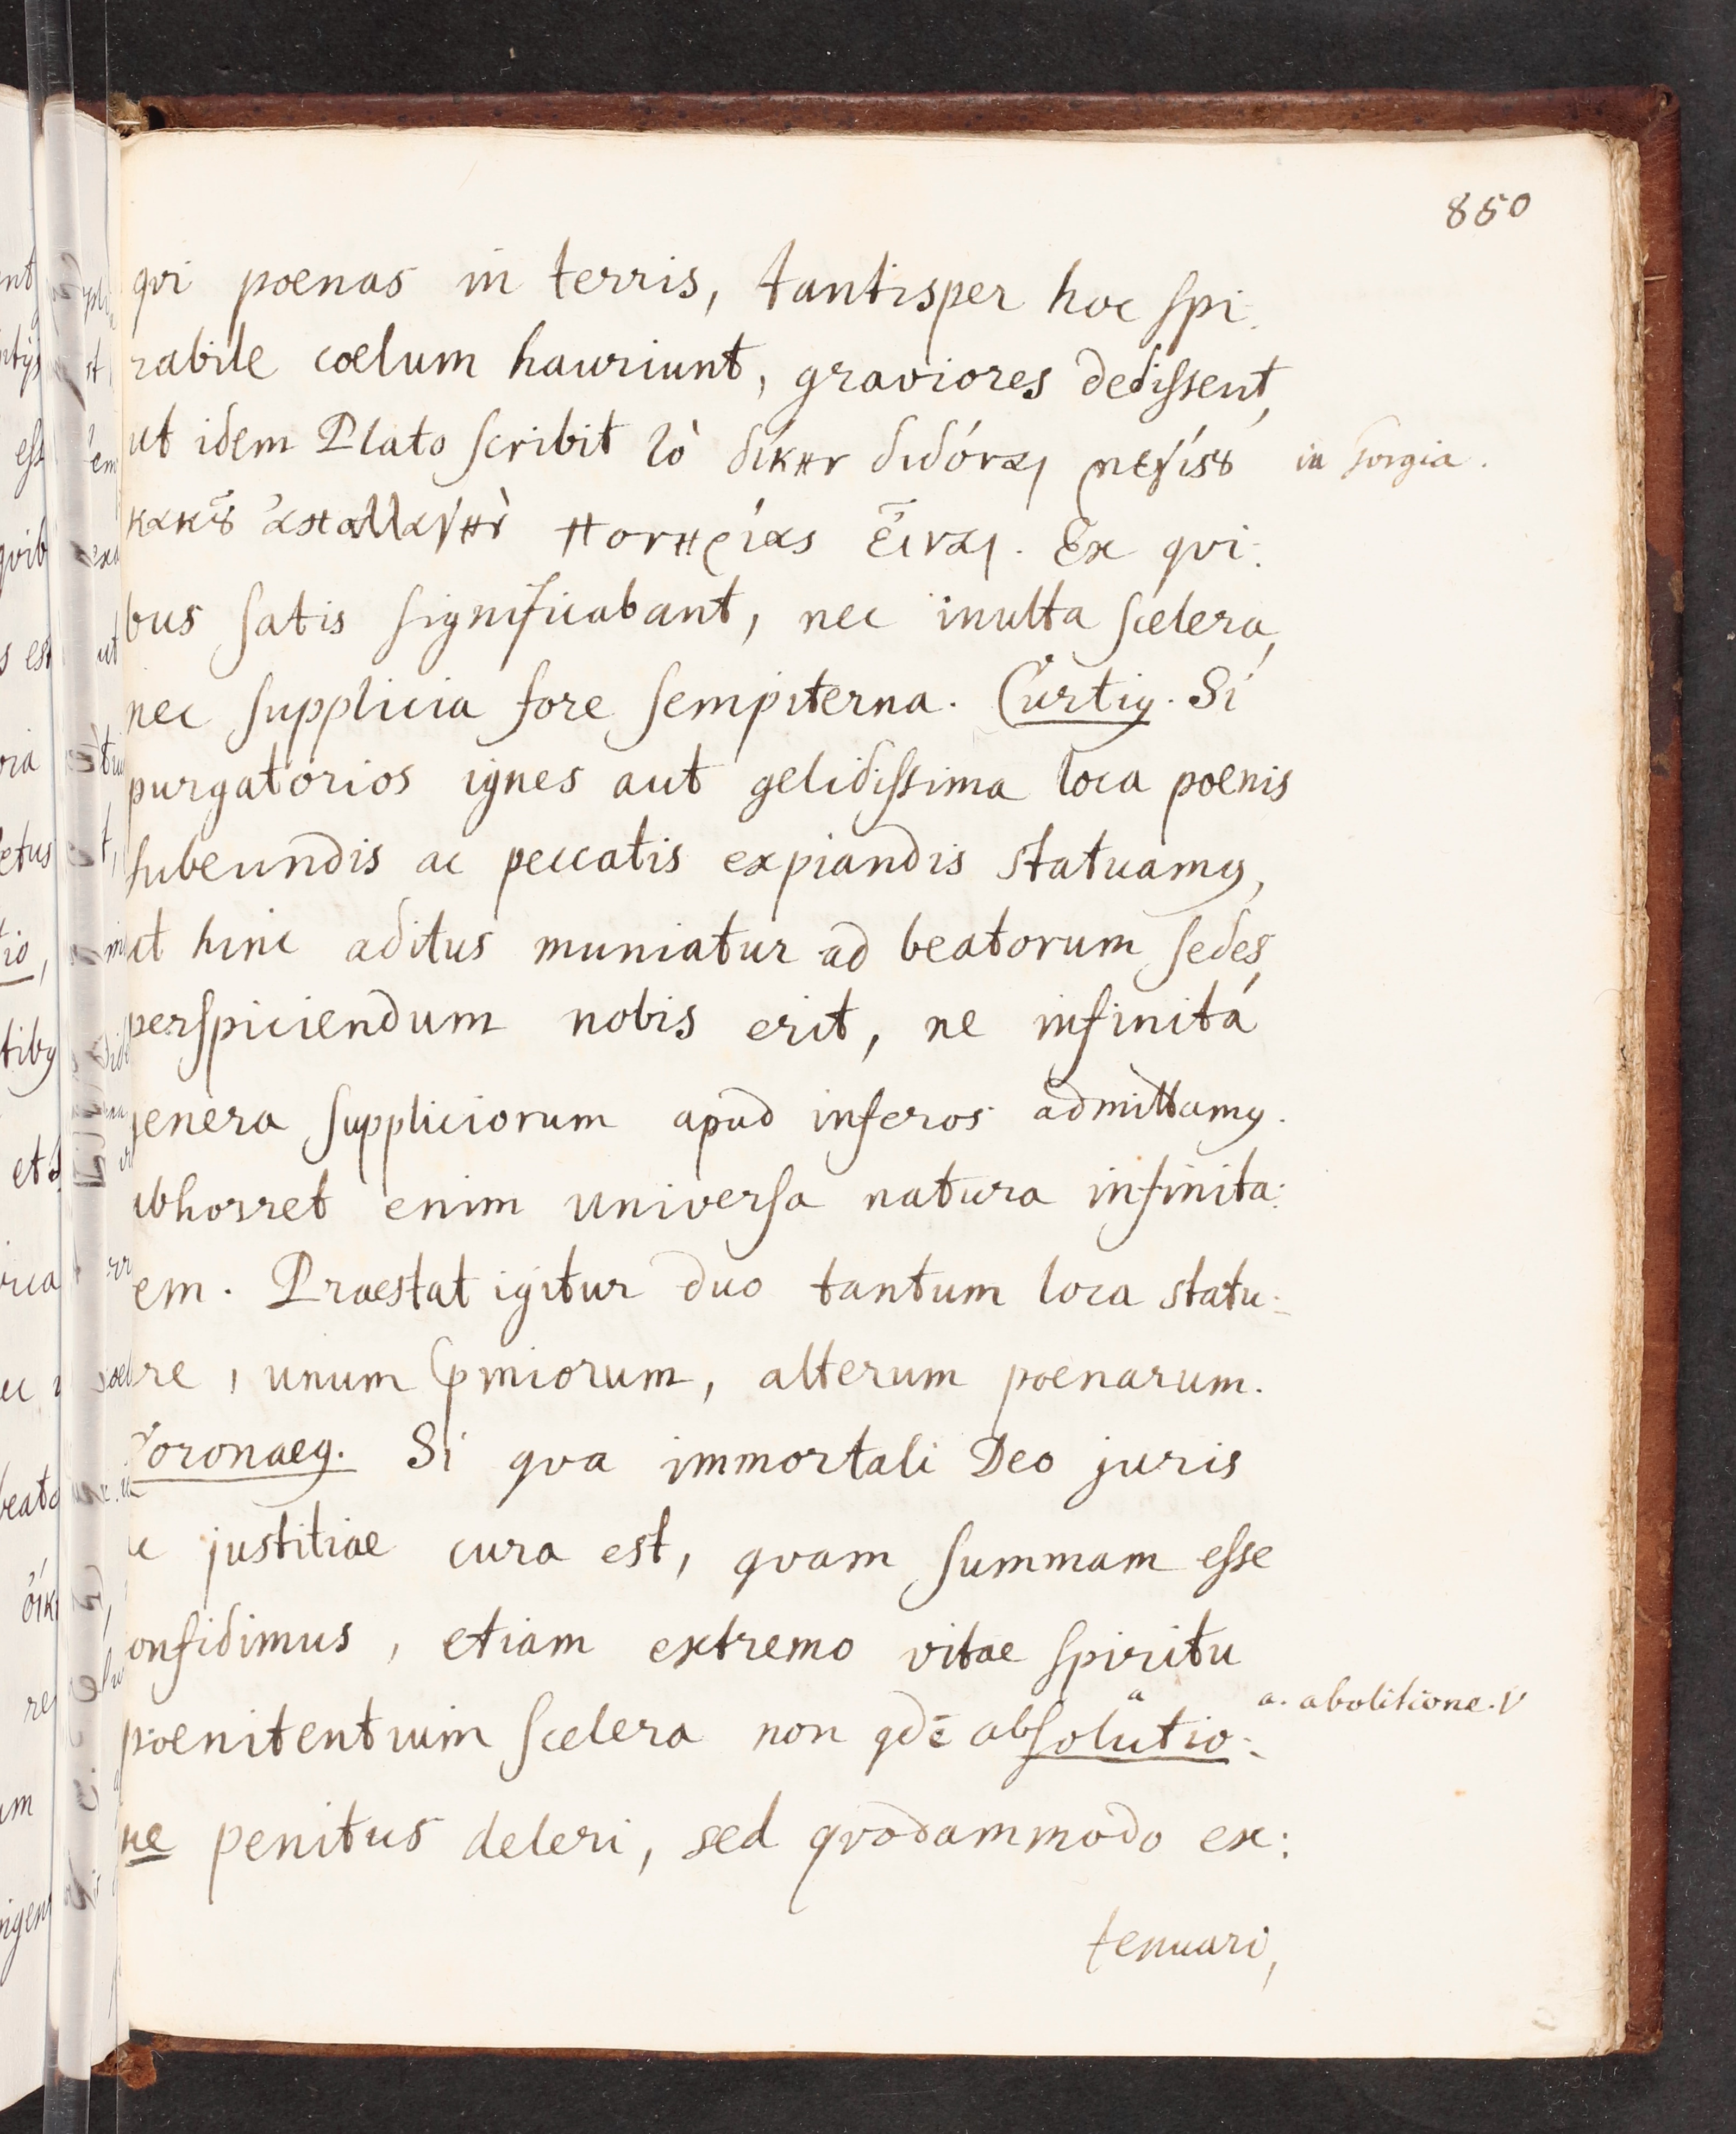 850
qvi poenas in terris, tantisper hoc spi-
rabile coelum hauriunt, graviores dedissent,
ut idem Plato scribit τὸ δίκην διδόναι μεγίστȣ in Gorgia.
κακȣ̃ ἀπαλλαγὴν πονηρίας εἶναι. Ex qvi:
bus satis significabant, nec inulta scelera,
nec supplicia fore sempiterna. Curtiꝰ. Si
purgatorios ignes aut gelidissima loca poenis
subeundis ac peccatis expiandis statuamꝰ,
ut hinc aditus muniatur ad beatorum sedes,
perspiciendum nobis erit, ne infinita
genera suppliciorum apud inferos admittamꝰ.
abhorret enim universa natura infinita:
em. Praestat igitur duo tantum loca statu-
re, unum p̄miorum, alterum poenarum.
Coronaeꝰ. Si qva immortali Deo juris
ac justitiae cura est, qvam summam esse
onfidimus, etiam extremo vitae spiritu
poenitentium scelera non qdē absolutio- a
a. abolitione. V
ne penitus deleri, sed qvodammodo ex:
tenuari,